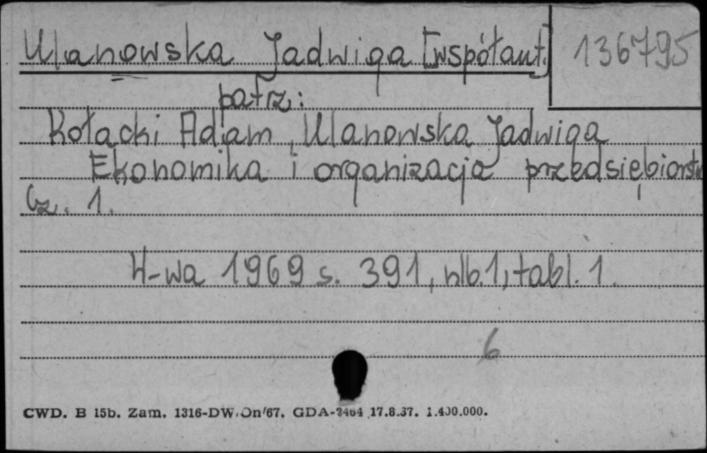 Ulanowska Jadwiga [współaut.] 136795
patrz:
Kołacki Adam, Ulanowska Jadwiga
Ekonomika i organizacja przedsiębiorstw
Cz. 1.
W-wa 1969 s. 391, nlb. 1, tabl. 1.
6
CWD. B 15b. Zam. 1316-DW/On/67. GDA-2464 17.8.67. 1.400.000.